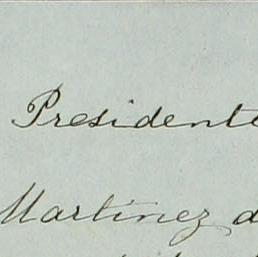 Presidente
Martinez d